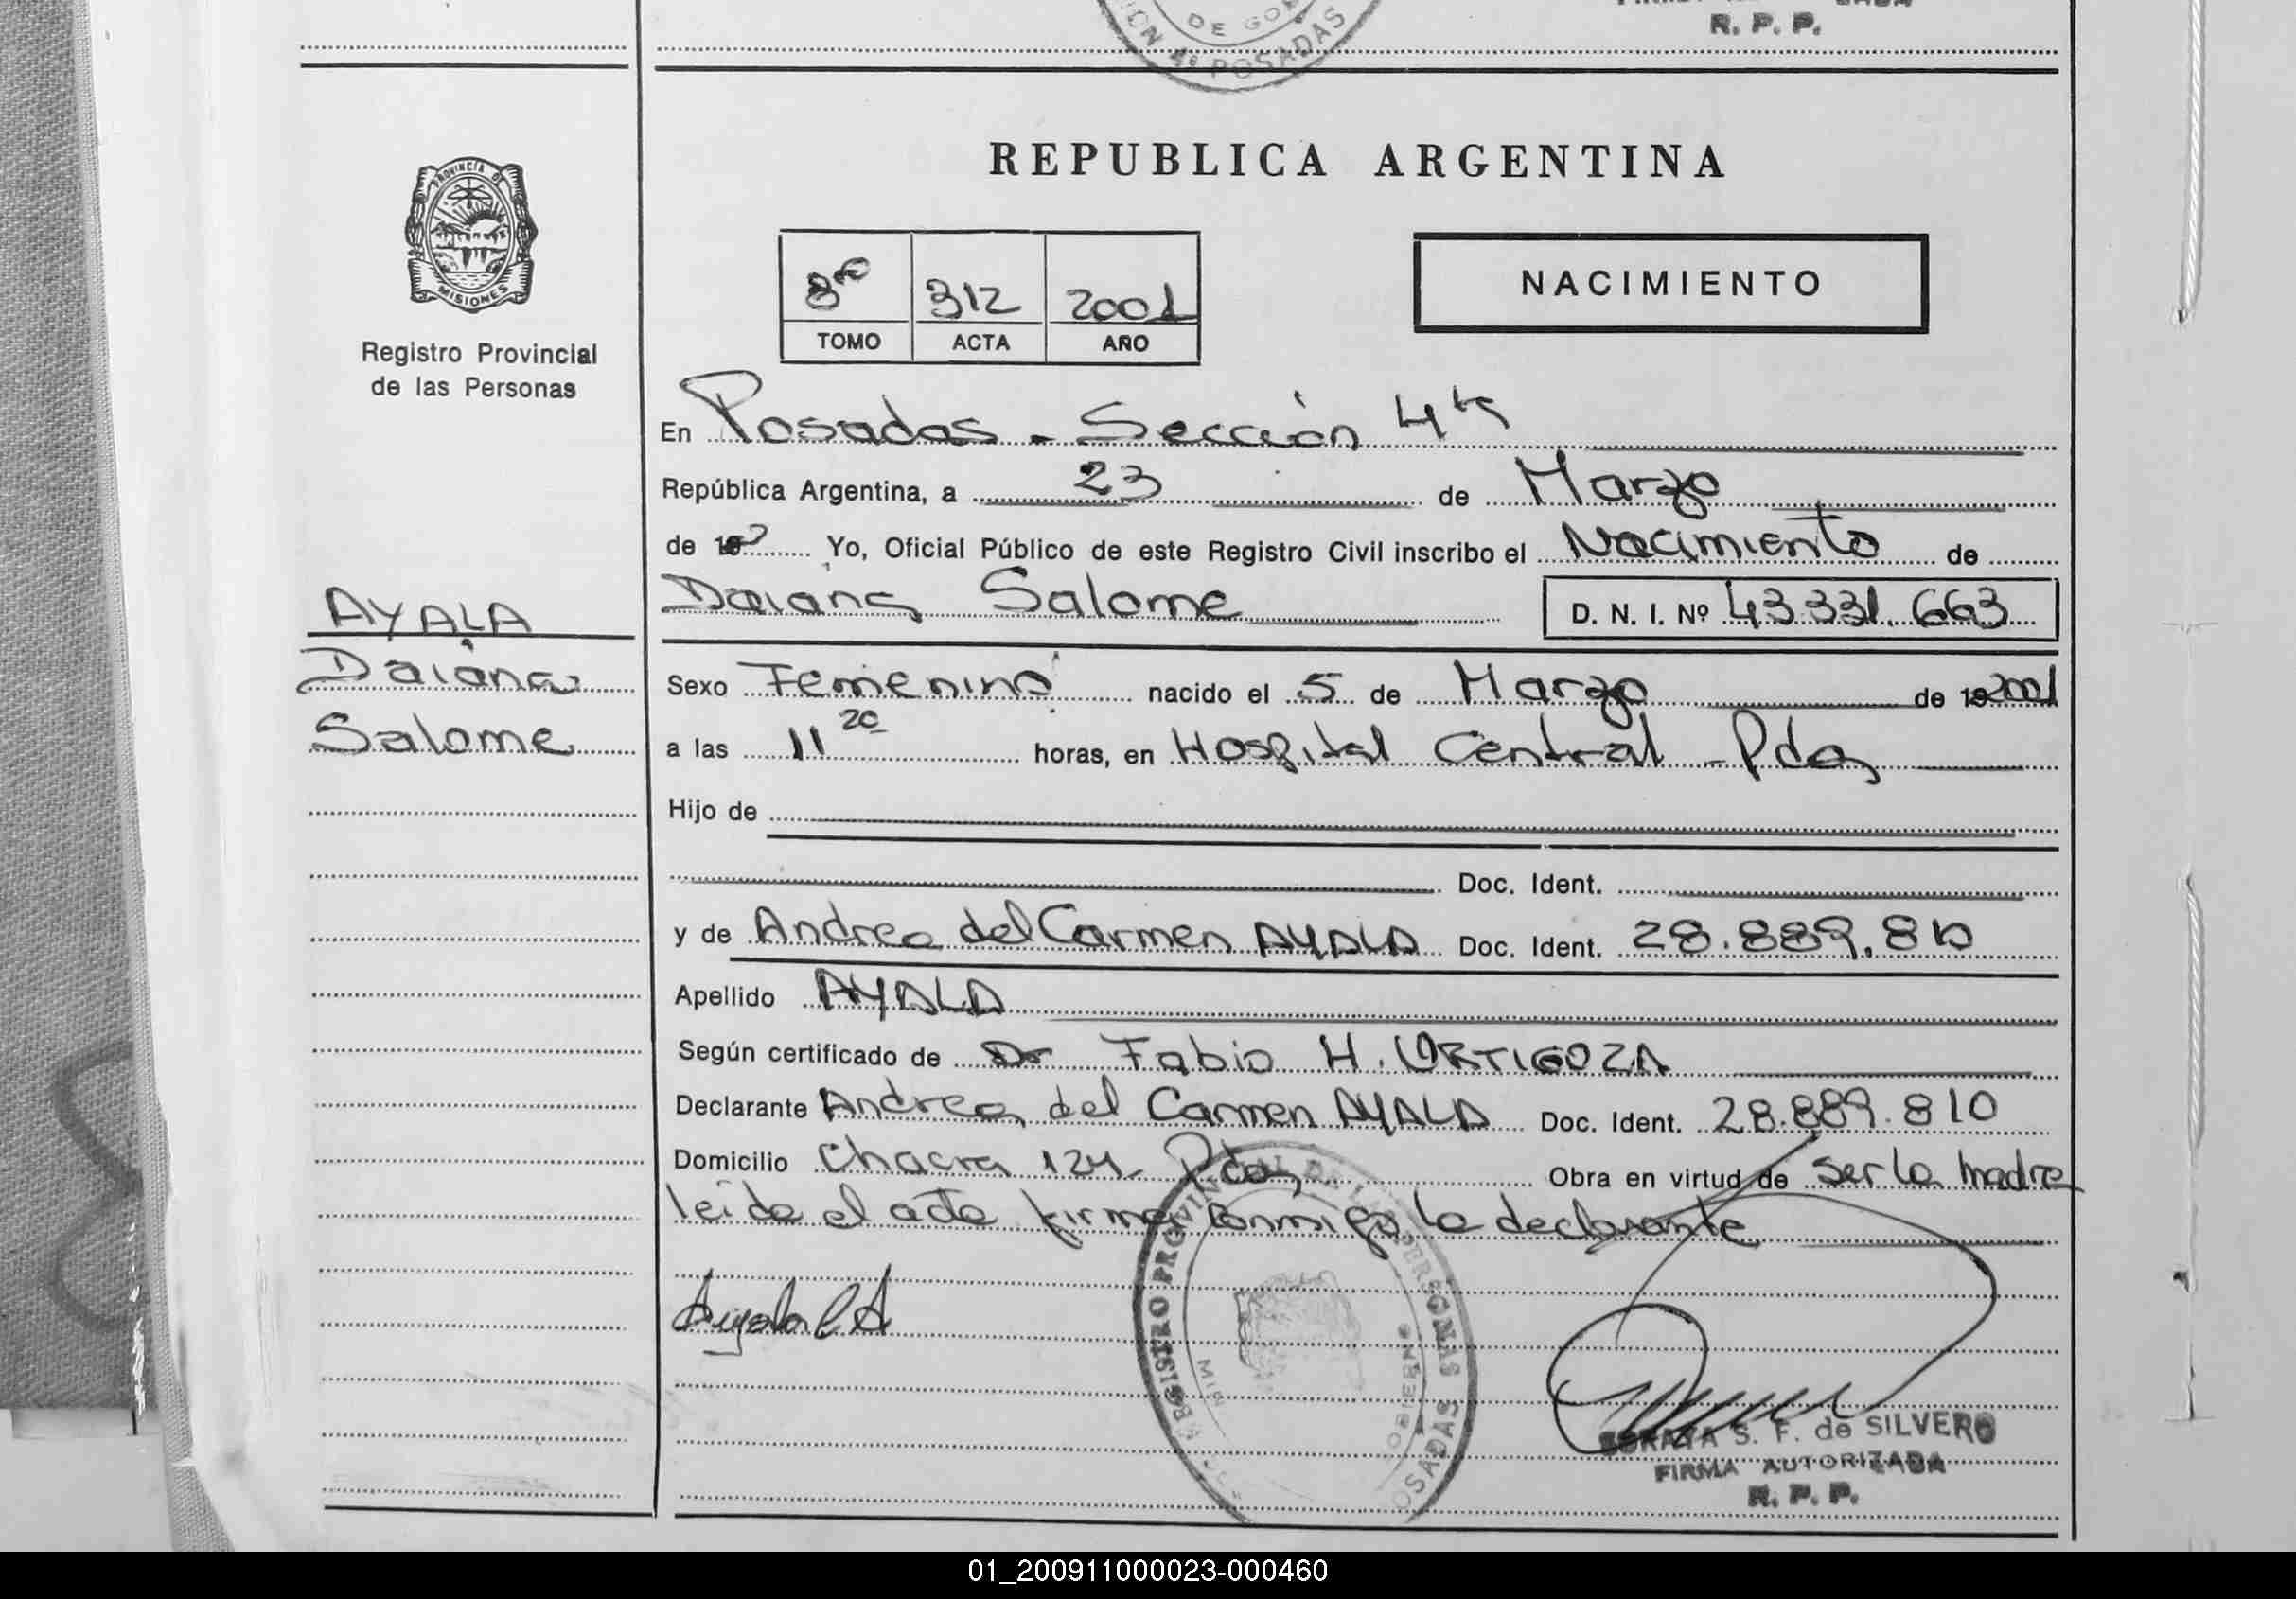 DE GOB
ION 4ª POSADAS
R. P. P.
PROVINCIA DE
MISIONES
Registro Provincial
de las Personas
REPUBLICA ARGENTINA
8vo 312 2001
TOMO ACTA AÑO
NACIMIENTO
En Posadas - Sección 4ta
República Argentina, a 23 de Marzo
de 19 Yo, Oficial Público de este Registro Civil inscribo el Nacimiento de
AYALA
Daiana Salome D. N. I. Nº 43.331.663
Daiana
Sexo Femenino nacido el 5 de Marzo de 19 2001
Salome
a las 11 20 horas, en Hospital Central - Pdas
Hijo de
Doc. Ident.
y de Andrea del Carmen AYALA Doc. Ident. 28.889.810
Apellido AYALA
Según certificado de Dr Fabio H. ORTIGOZA
Declarante Andrea del Carmen AYALA Doc. Ident. 28.889.810
Domicilio Chacra 124 - Pdas Obra en virtud de ser la madre
leida el acta firma conmigo la declarante
Ayala C A
REGISTRO PROVINCIAL DE LAS PERSONAS
POSADAS
GOBIERNO
SORAYA S. F. de SILVERO
FIRMA AUTORIZADA
R. P. P.
01_200911000023-000460